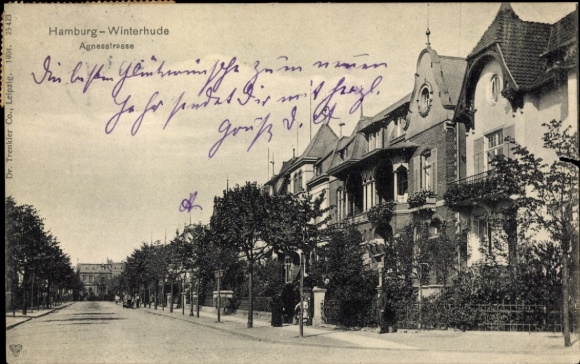 Hamburg - Winterhude
Agnesstrasse
Die besten Glückwünsche zum neuen
Jahr sendet Dir mit herzl.
Gruß D.
Dr. Trenkler Co., Leipzig. 1904. 25 423